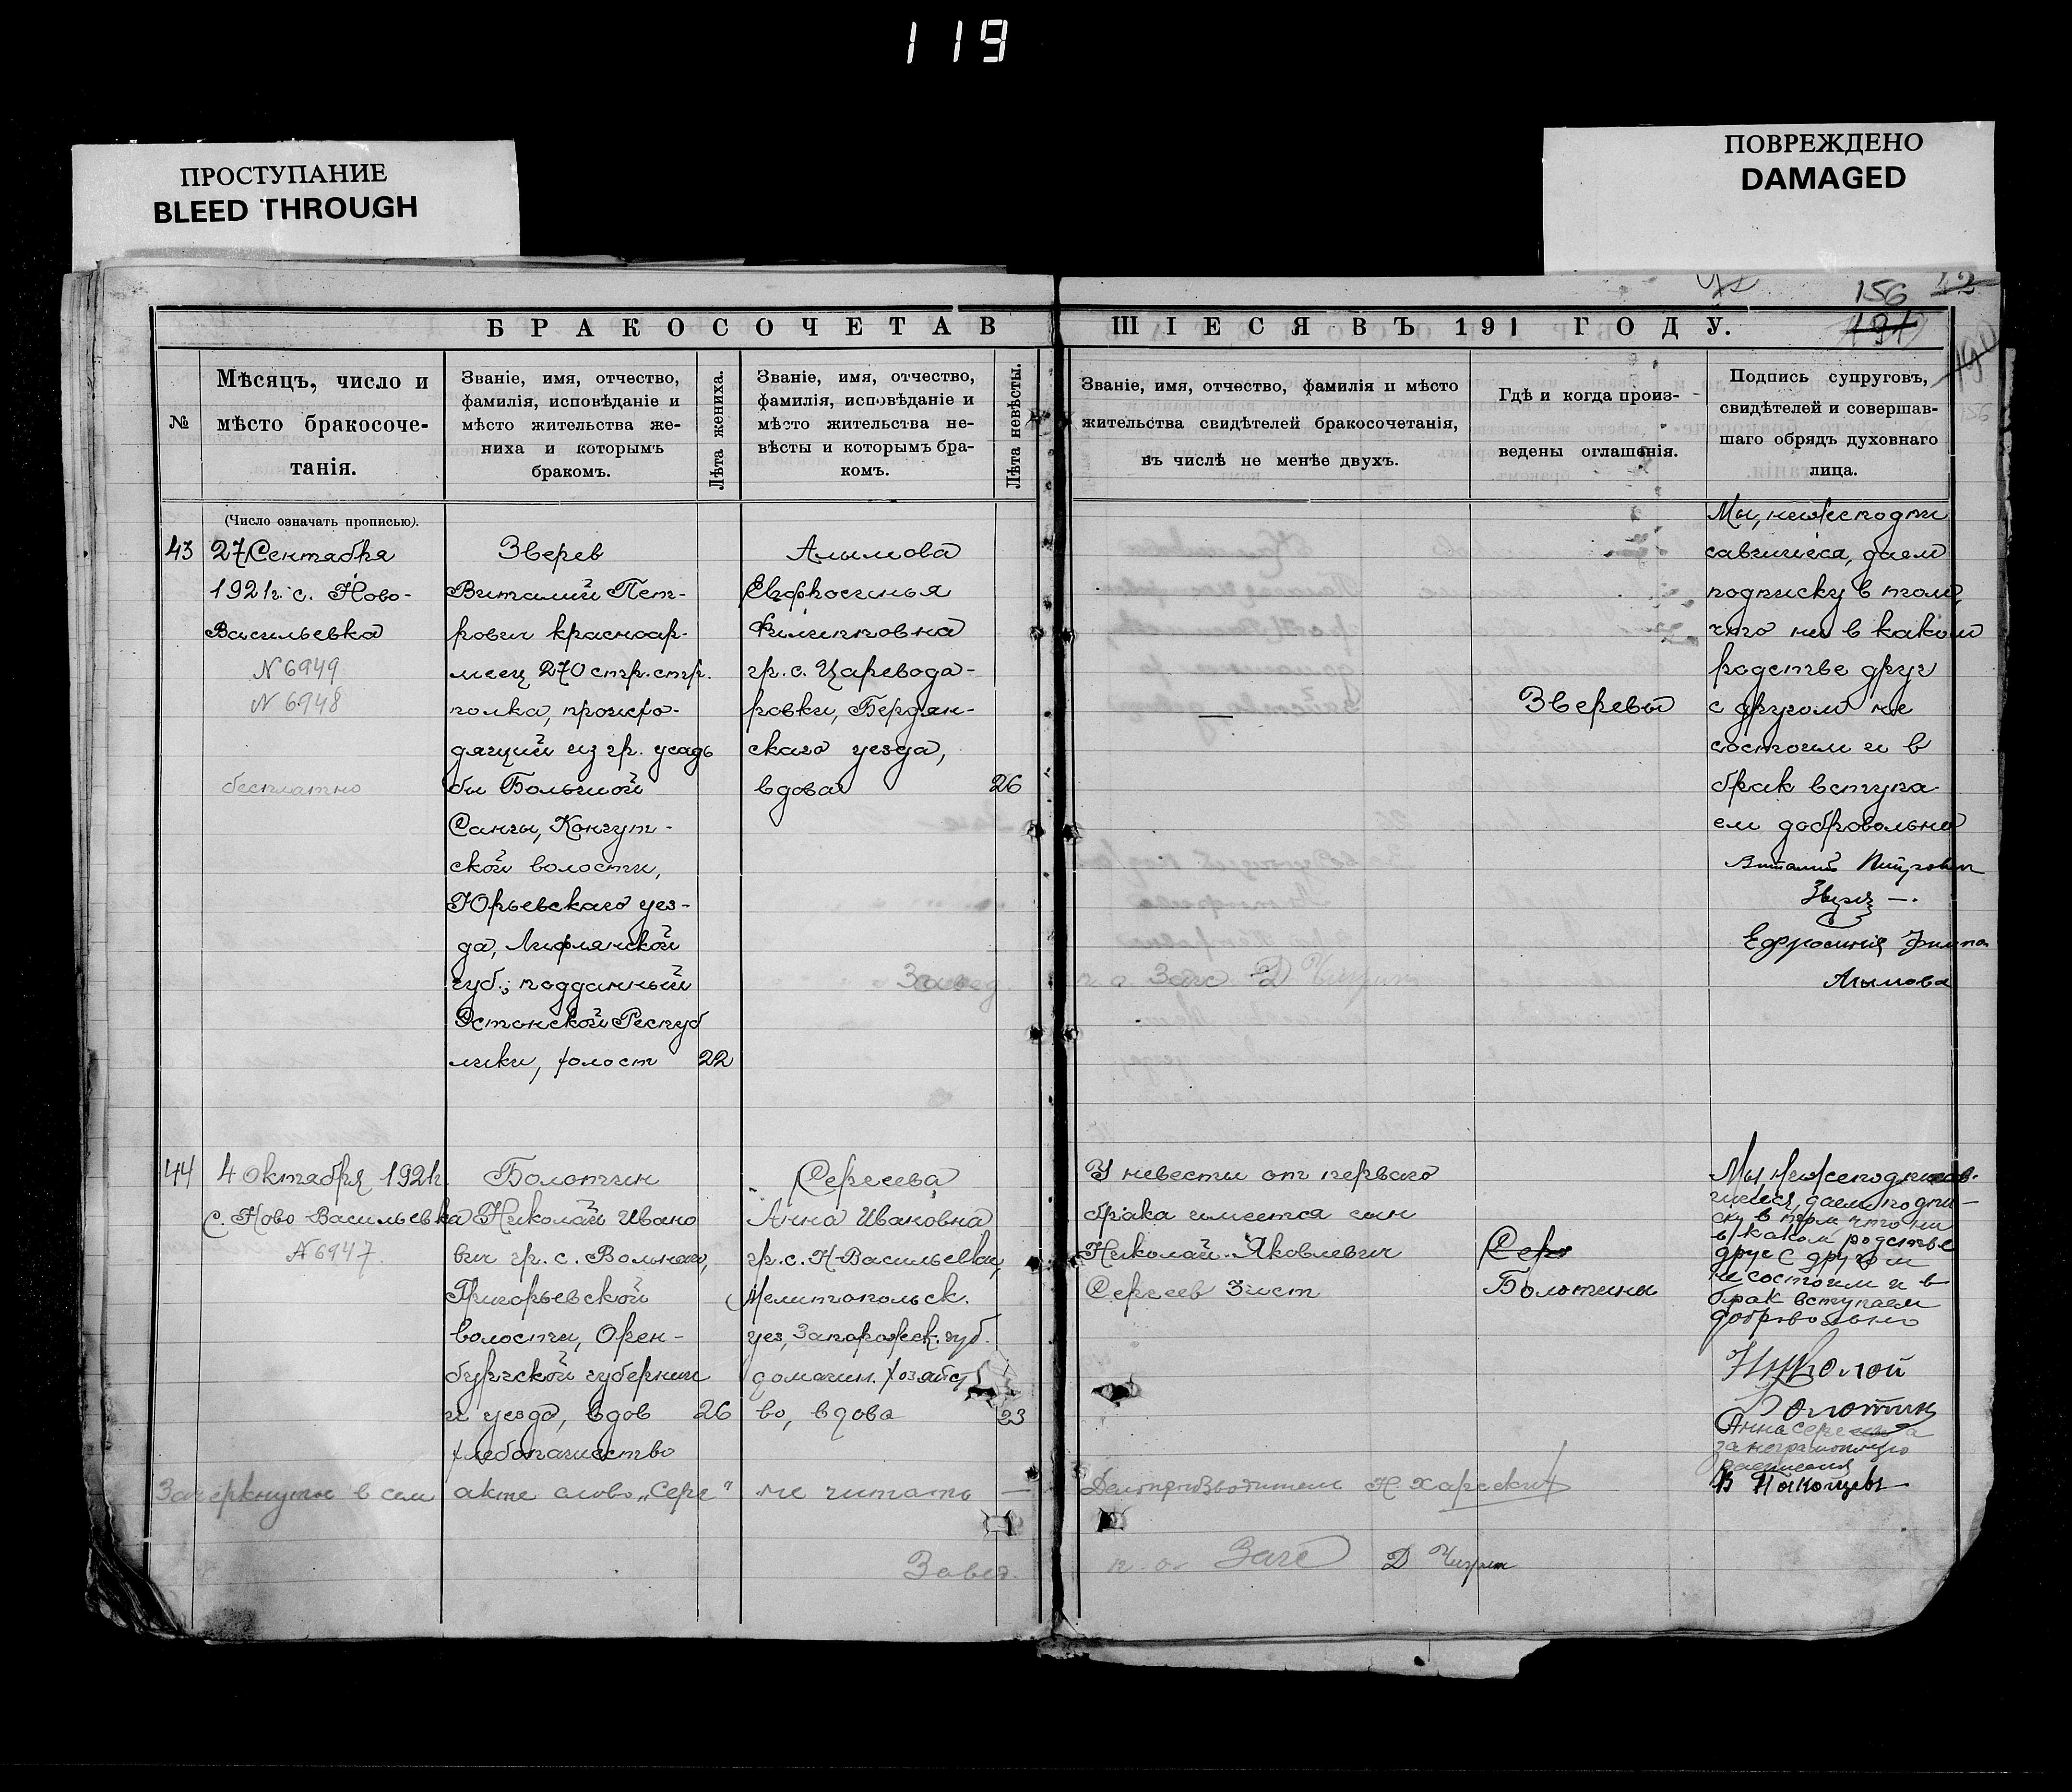 119
ПРОСТУПАНИЕ
BLEED THROUGH
ПОВРЕЖДЕНО
DAMAGED
156
БРАКОСОЧЕТАВ
ШІЕСЯ ВЪ 191 ГОДУ.
№
Мѣсяцъ, число и
мѣсто бракосоче-
танія.
Званіе, имя, отчество,
фамилія, исповѣданіе и
мѣсто жительства же-
ниха и которымъ
бракомъ.
Лѣта жениха.
Званіе, имя, отчество,
фамилія, исповѣданіе и
мѣсто жительства не-
вѣсты и которымъ бра-
комъ.
Лѣта невѣсты.
Званіе, имя, отчество, фамилія и мѣсто
жительства свидѣтелей бракосочетанія,
въ числѣ не менѣе двухъ.
Гдѣ и когда произ-
ведены оглашенія.
Подпись супруговъ,
свидѣтелей и совершав-
шаго обрядъ духовнаго
лица.
(Число означать прописью).
43
27 Сентября
1921г. с. Ново-
Васильевка
N 6949
N 6948
бесплатно
Зверев
Виталий Пет-
рович красноар-
меец 270 стр. стр.
полка, происхо-
дящий из гр. усадь
бы Большой
Санги, Конгут-
ской волости,
Юрьевскаго уез-
да, Лифлянской
губ.; подданный
Эстонской Респуб
лики, холост
22
Алымова
Евфросинья
Филипповна
гр. с. Царевода-
ровки, Бердян-
скаго уезда,
вдова
26
—
Зверевы
Мы, нижеподпи
савшиеся, даем
подписку в том,
что ни в каком
родстве друг
с другом не
состоим и в
брак вступа-
ем добровольно
Виталий Петрович
Зверев
Ефросиния
Алымова
Завед.
п о Загс Д
44
4 Октября 1921г.
с. Ново-Васильевка
N 6947
Болотин
Николай Ивано
вич гр. с. Вольнаго,
Григорьевской
волости, Орен-
бургской губернии
и уезда, вдов
26
хлебопашество
Сергеева
Анна Ивановна
гр. с. Н-Васильевки,
Мелитопольск.
уез, Запорожск. губ.
домашн. хозяйст
во, вдова
23
У невесты от первого
брака имеется сын
Николай Яковлевич
Сергеев 3 лет
Серг
Болотины
Мы нижеподписав-
шиеся, даем подпи-
ску в том что ни
в каком родстве
друг с другом
не состоим и в
брак вступаем
добровольно
Николай
Болотин
Анна Сергеева
за неграмотную
расписался
В
Зачеркнутое в сем акте слово „Серг" не читать —
Делопроизводитель Н.
Завед.
п. о. Загс Д